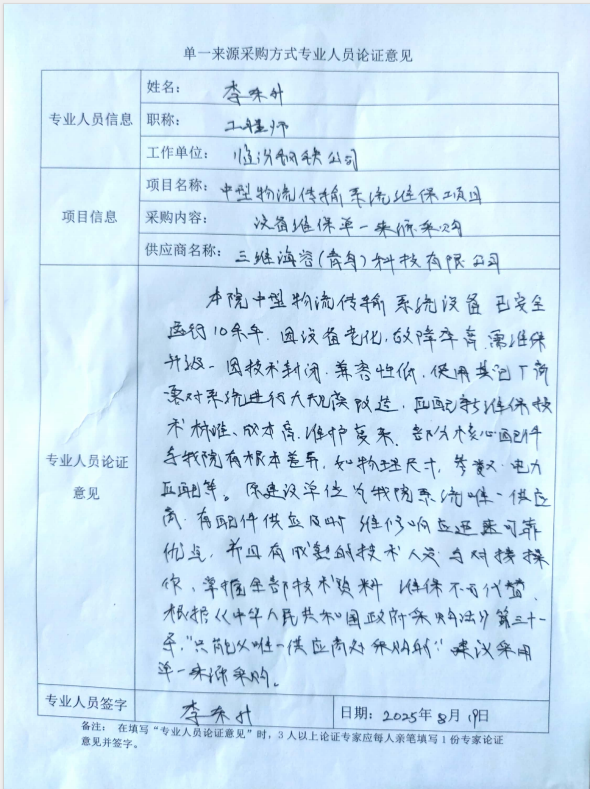 单一来源采购方式专业人员论证意见
专业人员信息
姓名：
李 升
职称：
工程师
工作单位：
临汾钢铁公司
项目信息
项目名称：
中型物流传输系统维保项目
采购内容：
设备维保单一来源采购
供应商名称：
三维海容(青岛)科技有限公司
专业人员论证
意见
本院中型物流传输系统设备已安全
运行10余年.因设备老化,故障率高,需维保
升级.因技术封闭.兼容性低.使用其它厂商
需对系统进行大规模改造.匹配新维保技
术标准、成本高.维护复杂.部分核心配件
与我院有根本差异,如物理尺寸,参数.电力
匹配等。原建设单位为我院系统唯一供应
商.有配件供应及时 维修响应迅速可靠
优点,并且有成熟的技术人员与对接操
作,掌握全部技术资料 维保不可代替.
根据《中华人民共和国政府采购法》第三十一
条,"只能从唯一供应商处采购的"建议采用
单一来源采购.
专业人员签字
李 升
日期：2025年8月19日
备注： 在填写“专业人员论证意见”时，3 人以上论证专家应每人亲笔填写 1 份专家论证
意见并签字。